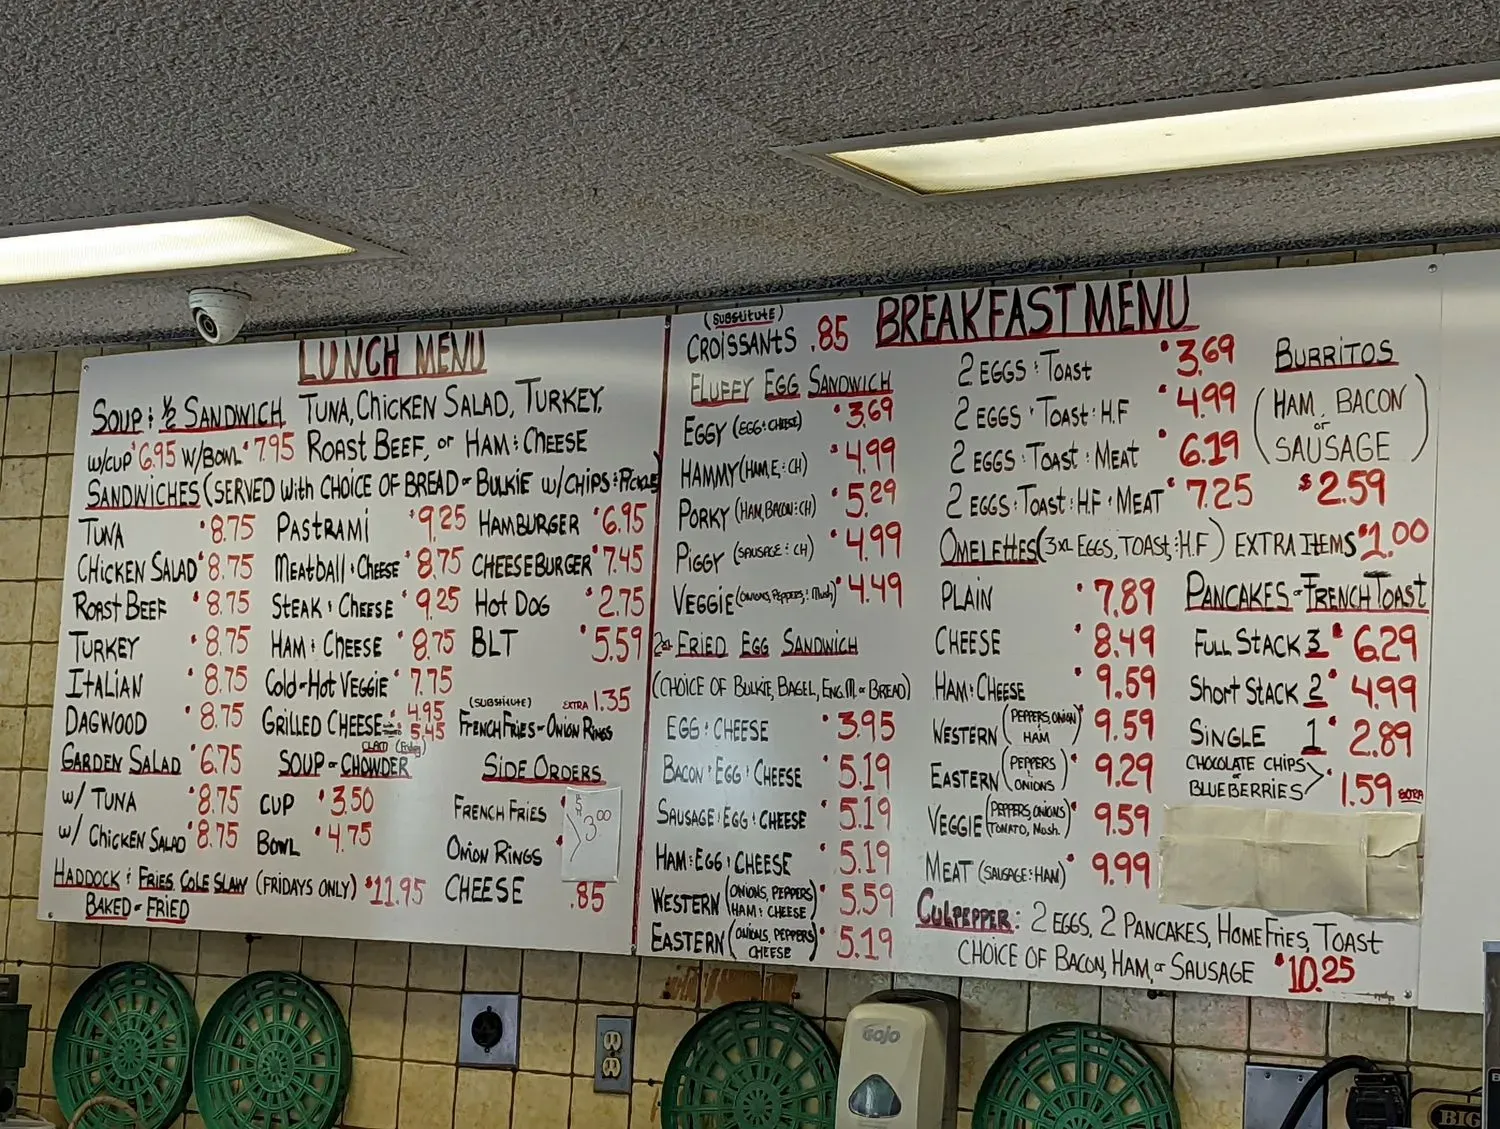 LUNCH MENU
SOUP & 1/2 SANDWICH TUNA, CHICKEN SALAD, TURKEY,
W/CUP $6.95 W/BOWL $7.95 ROAST BEEF, or HAM & CHEESE
SANDWICHES (SERVED with CHOICE OF BREAD or BULKIE W/CHIPS & PICKLE)
TUNA $8.75
CHICKEN SALAD $8.75
ROAST BEEF $8.75
TURKEY $8.75
ITALIAN $8.75
DAGWOOD $8.75
GARDEN SALAD $6.75
W/ TUNA $8.75
W/ CHICKEN SALAD $8.75
HADDOCK & FRIES, COLE SLAW (FRIDAYS ONLY) $11.95
BAKED or FRIED
PASTRAMI $9.25
MEATBALL & CHEESE $8.75
STEAK & CHEESE $9.25
HAM & CHEESE $8.75
Cold or Hot VEGGIE $7.75
GRILLED CHEESE $4.95
5.45
CLAM (Friday)
SOUP or CHOWDER
CUP $3.50
BOWL $4.75
HAMBURGER $6.95
CHEESEBURGER $7.45
HOT DOG $2.75
BLT $5.59
(SUBSTITUTE) EXTRA 1.35
FRENCH FRIES or ONION RINGS
SIDE ORDERS
FRENCH FRIES $
ONION RINGS $
3.00
CHEESE .85
(SUBSTITUTE)
CROISSANTS .85
FLUFFY EGG SANDWICH
EGGY (EGG & CHEESE) $3.69
HAMMY (HAM, E & CH) $4.99
PORKY (HAM, BACON & CH) $5.29
PIGGY (SAUSAGE & CH) $4.99
VEGGIE (ONIONS, PEPPERS, & Mush) $4.49
FRIED EGG SANDWICH
(CHOICE OF BULKIE, BAGEL, ENG. M. or BREAD)
EGG & CHEESE $3.95
BACON & EGG & CHEESE $5.19
SAUSAGE & EGG & CHEESE $5.19
HAM & EGG & CHEESE $5.19
WESTERN (ONIONS, PEPPERS, HAM & CHEESE) $5.59
EASTERN (ONIONS, PEPPERS, CHEESE) $5.19
BREAKFAST MENU
2 EGGS & TOAST $3.69
2 EGGS & TOAST & H.F $4.99
2 EGGS & TOAST & MEAT $6.19
2 EGGS & TOAST & H.F & MEAT $7.25
BURRITOS
(HAM, BACON
or
SAUSAGE)
$2.59
OMELETTES (3XL EGGS, TOAST, & H.F) EXTRA ITEMS $1.00
PLAIN $7.89
CHEESE $8.49
HAM & CHEESE $9.59
WESTERN (PEPPERS, ONION HAM) $9.59
EASTERN (PEPPERS & ONIONS) $9.29
VEGGIE (PEPPERS, ONIONS, TOMATO, Mush.) $9.59
MEAT (SAUSAGE & HAM) $9.99
PANCAKES or FRENCH TOAST
FULL STACK 3 $6.29
SHORT STACK 2 $4.99
SINGLE 1 $2.89
CHOCOLATE CHIPS
or
BLUEBERRIES 1.59 EXTRA
CULPEPPER: 2 EGGS, 2 PANCAKES, HOME FRIES, TOAST
CHOICE OF BACON, HAM, or SAUSAGE $10.25
GOJO
BIG